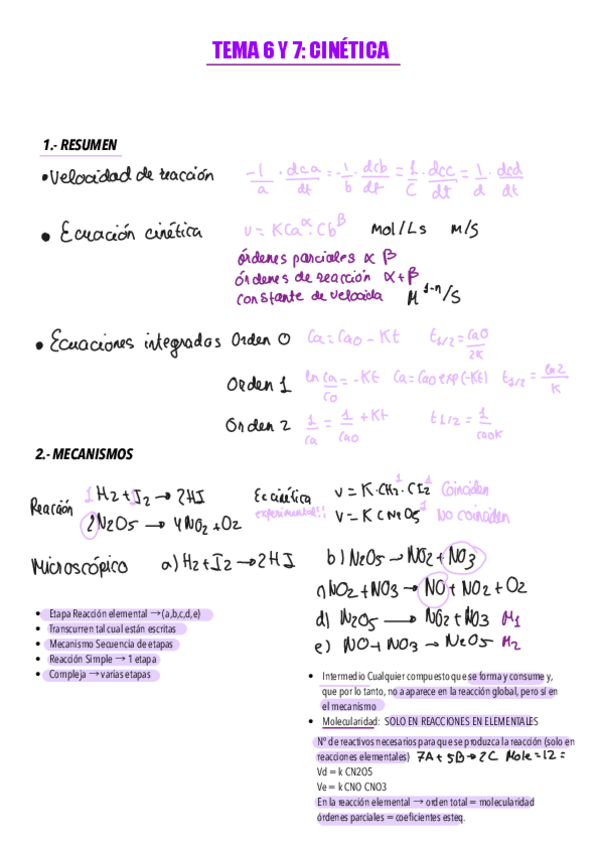 TEMA 6 Y 7: CINÉTICA
1.- RESUMEN
• Velocidad de reacción -1/a · dca/dt = -1/b · dcb/dt = 1/c · dcc/dt = 1/d · dcd/dt
• Ecuación cinética v = KCa^α · Cb^β Mol/Ls M/S
órdenes parciales α β
órdenes de reacción α+β
constante de velocida M^1-n/S
• Ecuaciones integrados Orden 0 Ca = Cao - Kt t1/2 = Cao/2K
Orden 1 ln ca/co = -Kt Ca = Cao exp(-Kt) t1/2 = ln2/K
Orden 2 1/ca = 1/cao + Kt t1/2 = 1/caok
2.- MECANISMOS
Reacción 1H2 + I2 → 2HI Ec cinética v = K·CH2^1·CI2^1 Coinciden
2N2O5 → 4NO2 + O2 experimental!! v = K CN2O5^1 No coinciden
Microscópico a) H2 + I2 → 2HI b) N2O5 → NO2 + NO3
NO2 + NO3 → NO + NO2 + O2
d) N2O5 → NO2 + NO3 M1
e) NO + NO3 → N2O5 M2
• Etapa Reacción elemental → (a,b,c,d,e)
• Transcurren tal cual están escritas
• Mecanismo Secuencia de etapas
• Reacción Simple → 1 etapa
• Compleja → varias etapas
• Intermedio Cualquier compuesto que se forma y consume y,
que por lo tanto, no a aparece en la reacción global, pero sí en
el mecanismo
• Molecularidad: SOLO EN REACCIONES EN ELEMENTALES
Nº de reactivos necesarios para que se produzca la reacción (solo en
reacciones elementales) 7A + 5B → 2C Mole = 12 =
Vd = k CN2O5
Ve = k CNO CNO3
En la reacción elemental → orden total = molecularidad
órdenes parciales = coeficientes esteq.